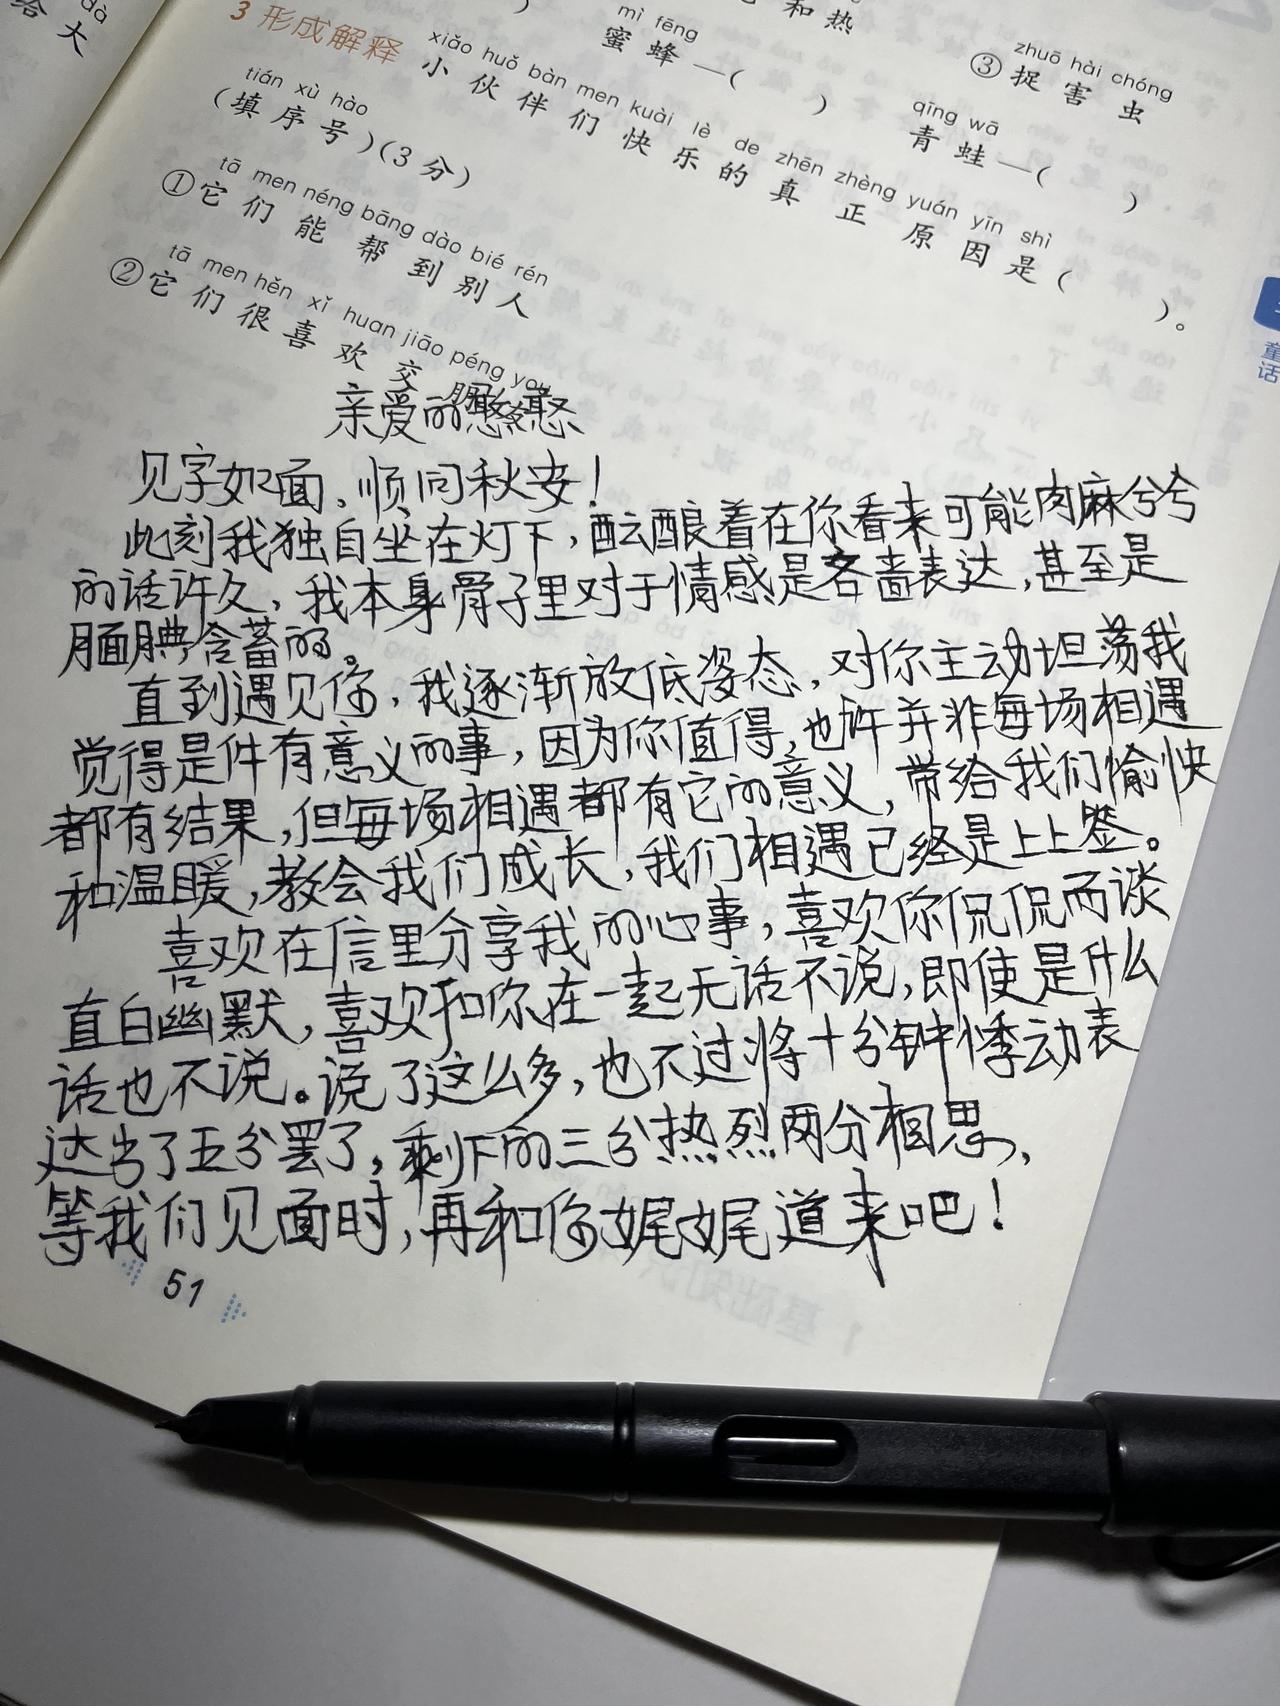 dà
给大
和热
mì fēng
蜜蜂—( )
zhuō hài chóng
③捉害虫
qīng wā
青蛙—( )
3 形成解释
xiǎo huǒ bàn men kuài lè de zhēn zhèng yuán yīn shì
小伙伴们快乐的真正原因是( )。
tián xù hào
(填序号)(3分)
tā men néng bāng dào bié rén
①它们能帮到别人
tā men hěn xǐ huan jiāo péng you
②它们很喜欢交朋友
童话
亲爱的憨憨
见字如面。顺问秋安！
此刻我独自坐在灯下,酝酿着在你看来可能肉麻兮兮
的话许久,我本身骨子里对于情感是吝啬表达,甚至是
腼腆含蓄的。
直到遇见你,我逐渐放低姿态,对你主动坦荡我
觉得是件有意义的事,因为你值得,也许并非每场相遇
都有结果,但每场相遇都有它的意义,带给我们愉快
和温暖,教会我们成长,我们相遇已经是上上签。
喜欢在信里分享我的心事,喜欢你侃侃而谈
直白幽默,喜欢和你在一起无话不说,即使是什么
话也不说。说了这么多,也不过将十分钟悸动表
达出了五分罢了,剩下的三分热烈两分相思、
等我们见面时,再和你娓娓道来吧！
51